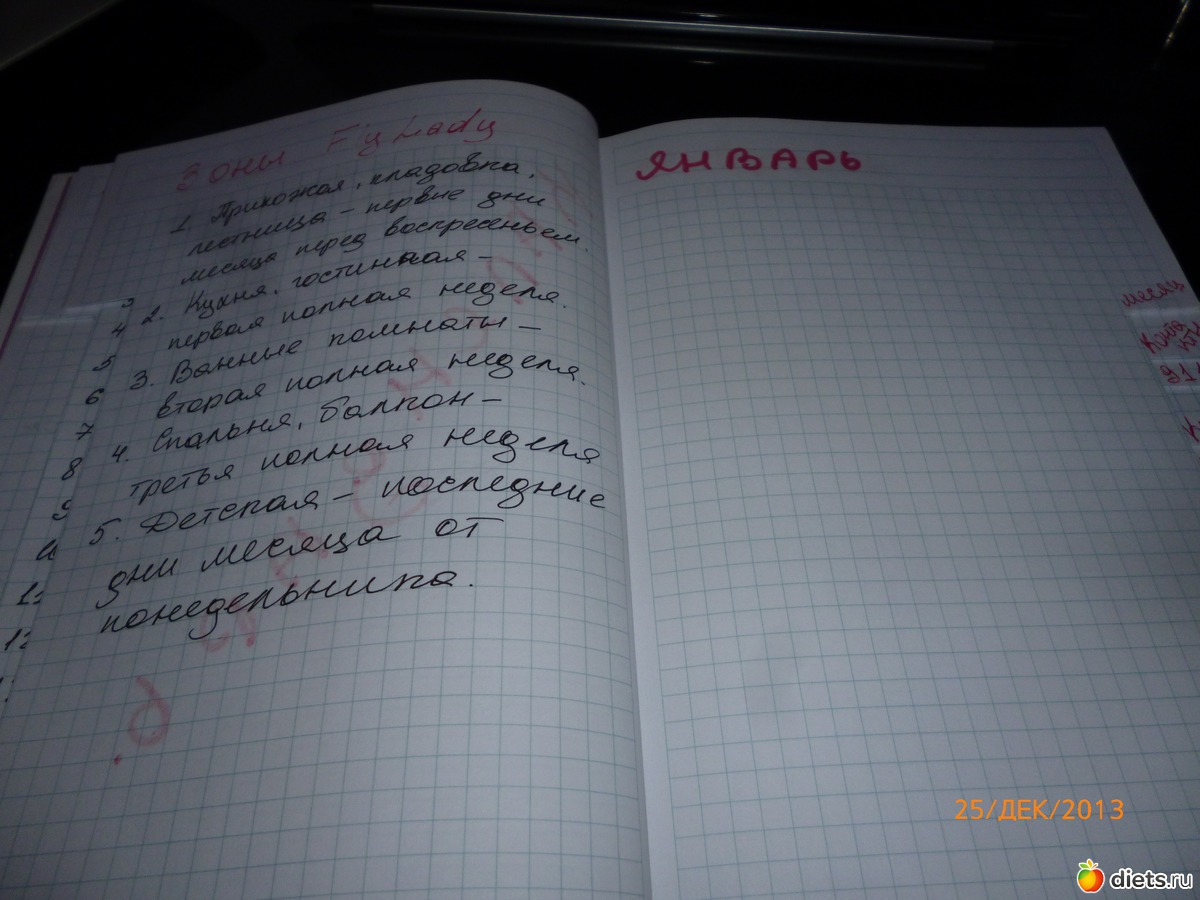 Зоны FlyLady
1. Прихожая, кладовка,
лестница – первые дни
месяца перед воскресеньем.
2. Кухня, гостинная –
первая полная неделя.
3. Ванные комнаты –
вторая полная неделя.
4. Спальня, балкон –
третья полная неделя
5. Детская – последние
дни месяца от
понедельника.
3
4
5
6
7
8
9
11
12
ЯНВАРЬ
месяц
911
25/ДЕК/2013
diets.ru